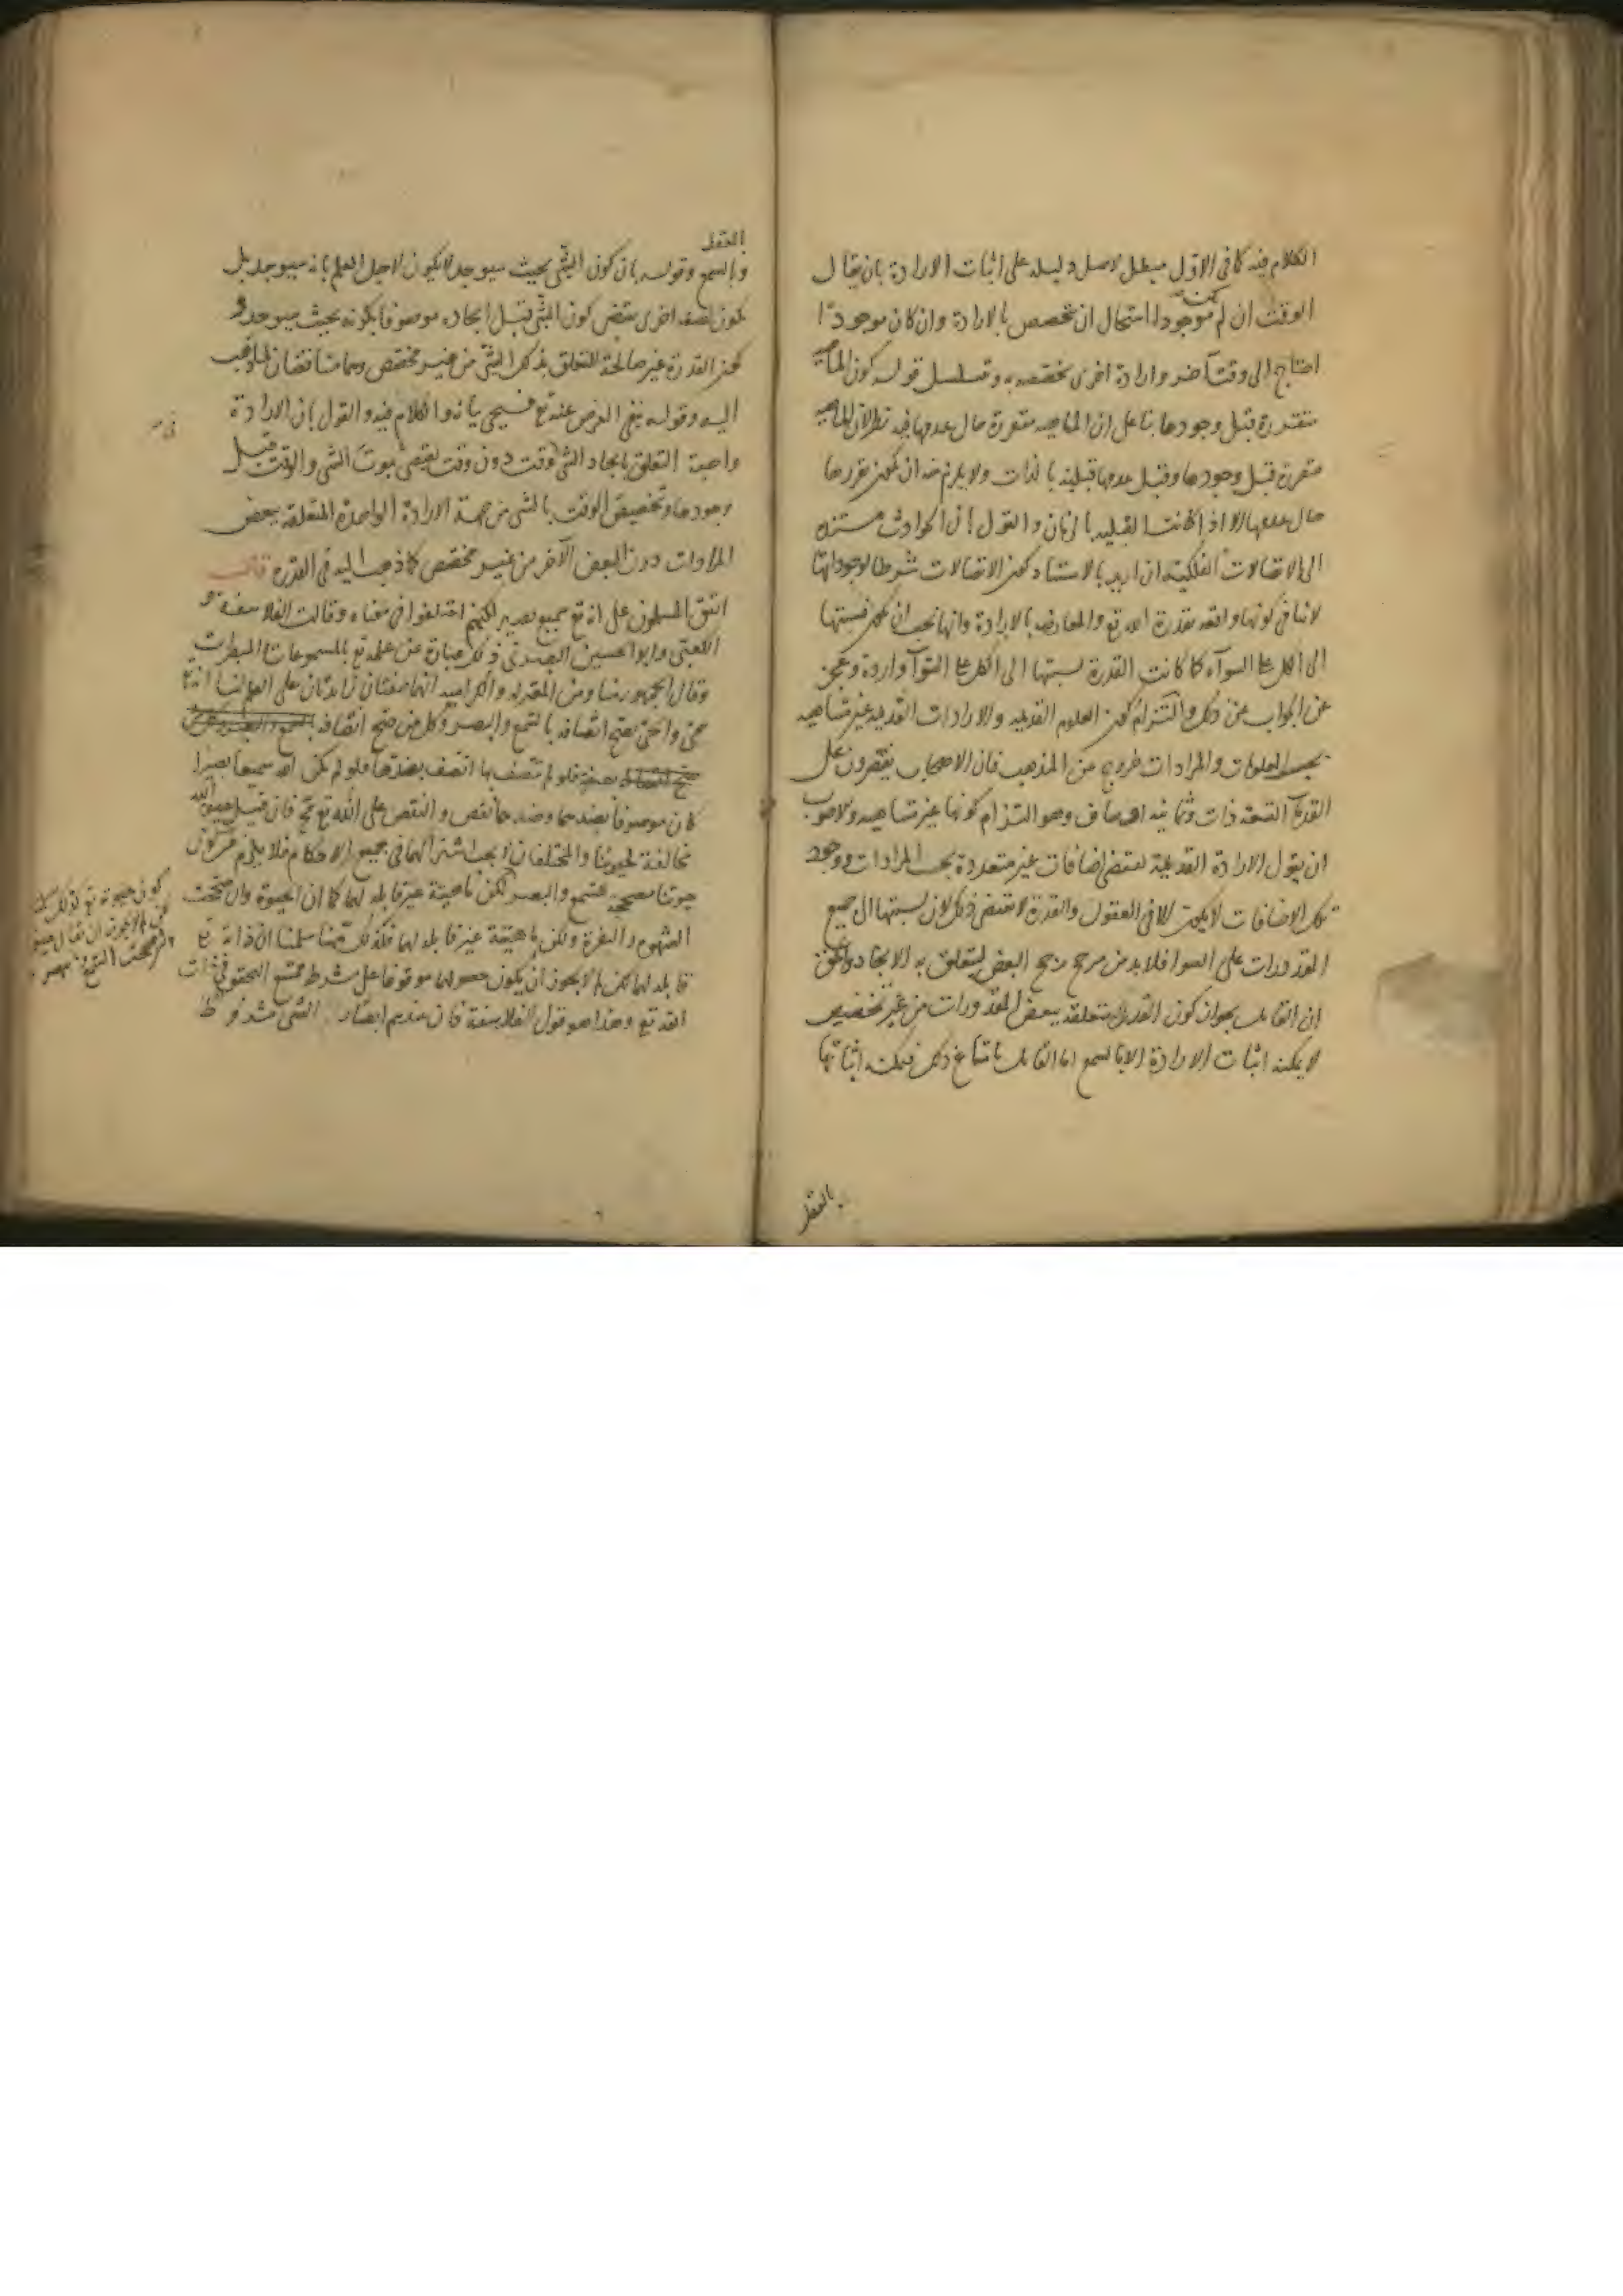 الكلام فيه كما في الاول مبطل لاصل دليله على اثبات الارادة بان يقال
الوقت ان لم يكن موجودا استحال ان تخصص بالارادة وان كان موجودا
احتاج الى وقت آخر وارادة اخرى تخصصه به وتسلسل قوله كون الماهية
متقررة قبل وجودها بنا على ان الماهيه متقررة حال عدمها فيه نظر لان الماهيه
متقررة قبل وجودها وقبل عدمها قبلية بالذات ولا يلزم منه ان يكون تقررها
حال عدمها الا اذا كانت القبليه بالزمان والقول بان الحوادث مستنده
الى الاتصالات الفلكية ان اريد بالاستناد كون الاتصالات شرطا لوجوداتها
لا ينافي كونها واقعه بقدرة الله تع والمعارضه بالارادة وانها يجب ان يكون نسبتها
الى الكل على السوآء كما كانت القدرة نسبتها الى الكل على السوآ واردة وعجز
عن الجواب عن ذلك والتزام كون العلوم القديمه والارادات القديمه غير متناهيه
بحسب المعلومات والمرادات خروج عن المذهب فان الاصحاب يقتصرون على
القدمآ التسعة ذات وثمانيه اوصاف وهو التزام كونها غير متناهيه والاصوب
ان يقول الارادة القديمة تقتضي اضافات غير متعددة بحسب المرادات ووجود
تلك الاضافات لا يكون الا في العقول والقدرة لا تقتضي ذلك لان نسبتها الى جميع
المقدورات على السوا فلابد من مرجح يرجح البعض ليتعلق به الايجاد والحق
ان القائل بجواز كون القدرة متعلقه ببعض المقدورات من غير تخصيص
لا يمكنه اثبات الارادة الا بالسمع اما القائل بامتناع ذلك فيمكنه اثباتها
بالعقل
بالعقل
وبالسمع وقوله بان كون الشي بحيث سيوجد لا يكون لاجل العلم بانه سيوجد بل
يكون لصفة اخرى يقتضي كون الشي قبل ايجاده موصوفا بكونه بحيث سيوجد و
كون القدرة غير صالحة للتعلق بذلك الشي من غير مخصص وهما متناقضان لما ذهب
اليه وقوله نفي الغرض عنه تع فسيجي بيانه والكلام فيه والقول بان الارادة
واجبة التعلق بايجاد الشي في وقت دون وقت يقتضي ثبوت الشي والوقت قبل
وجودهما وتخصيص الوقت بالشي من جهة الارادة الواحدة المتعلقة ببعض
المرادات دون البعض الآخر من غير مخصص كما ذهب اليه في القدرة قال
اتفق المسلمون على انه تع سميع بصير لكنهم اختلفوا في معناه وقالت الفلاسفة و
الكعبي وابو الحسين البصري ذلك عبارة عن علمه تع بالمسموعات والمبصرات
وقال الجمهور منا ومن المعتزلة والكرامية انهما صفتان زائدتان على العلم لنا انه تع
حي والحي يصح اتصافه بالسمع والبصر وكل من صح اتصافه
بصفة فلو لم يتصف بها اتصف بضدها فلو لم يكن الله سميعا بصيرا
كان موصوفا بضدهما وضدهما نقص والنقص على الله تع مح فان قيل حيوة الله
مخالفة لحيوتنا والمختلفان لا يجب اشتراكهما في جميع الاحكام فلا يلزم من كون
حيوتنا مصححة للسمع والبصر لكن ماهيته غير قابله لهما كما ان الحيوة وان صححت
الشهوة والنفرة ولكن ماهيته غير قابله لهما فكذلك هنا سلمنا ان ذاته تع
قابله لهما لكن لم لا يجوز ان يكون حصولهما موقوفا على شرط ممتنع التحقق في ذات
الله تع وهذا هو قول الفلاسفة فان عندهم ابصار الشي مشروط
كون حيوته تع كذلك سلمنا